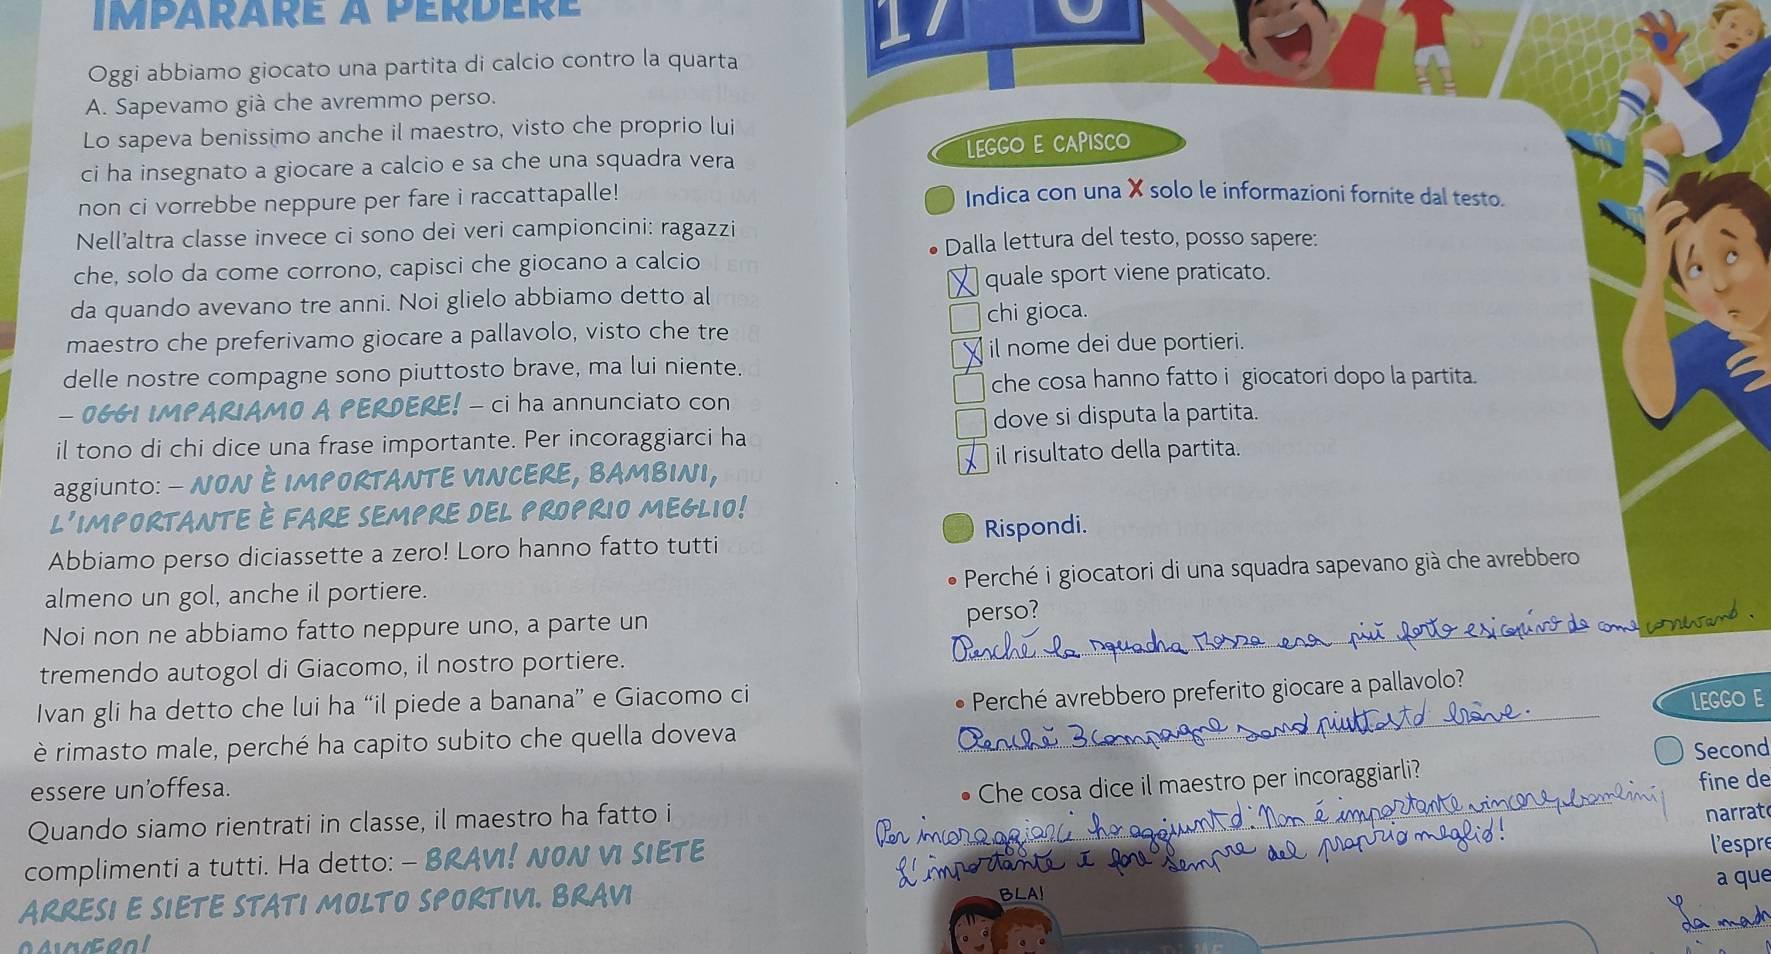 IMPARARE A PERDERE
Oggi abbiamo giocato una partita di calcio contro la quarta
A. Sapevamo già che avremmo perso.
Lo sapeva benissimo anche il maestro, visto che proprio lui
ci ha insegnato a giocare a calcio e sa che una squadra vera
non ci vorrebbe neppure per fare i raccattapalle!
Nell'altra classe invece ci sono dei veri campioncini: ragazzi
che, solo da come corrono, capisci che giocano a calcio
da quando avevano tre anni. Noi glielo abbiamo detto al
maestro che preferivamo giocare a pallavolo, visto che tre
delle nostre compagne sono piuttosto brave, ma lui niente.
– OGGI IMPARIAMO A PERDERE! – ci ha annunciato con
il tono di chi dice una frase importante. Per incoraggiarci ha
aggiunto: – NON È IMPORTANTE VINCERE, BAMBINI,
L'IMPORTANTE È FARE SEMPRE DEL PROPRIO MEGLIO!
Abbiamo perso diciassette a zero! Loro hanno fatto tutti
almeno un gol, anche il portiere.
Noi non ne abbiamo fatto neppure uno, a parte un
tremendo autogol di Giacomo, il nostro portiere.
Ivan gli ha detto che lui ha "il piede a banana" e Giacomo ci
è rimasto male, perché ha capito subito che quella doveva
essere un'offesa.
Quando siamo rientrati in classe, il maestro ha fatto i
complimenti a tutti. Ha detto: – BRAVI! NON VI SIETE
ARRESI E SIETE STATI MOLTO SPORTIVI. BRAVI
DAVVERO!
17
0
LEGGO E CAPISCO
Indica con una X solo le informazioni fornite dal testo.
• Dalla lettura del testo, posso sapere:
X quale sport viene praticato.
chi gioca.
X il nome dei due portieri.
che cosa hanno fatto i giocatori dopo la partita.
dove si disputa la partita.
X il risultato della partita.
Rispondi.
• Perché i giocatori di una squadra sapevano già che avrebbero
perso?
Perché la squadra rossa era più forte e si capiva da come correvano.
• Perché avrebbero preferito giocare a pallavolo?
Perché 3 compagne sono piuttosto brave.
• Che cosa dice il maestro per incoraggiarli?
Per incoraggiarci ha aggiunto: Non é importante vincere, bambini,
L'importante è fare sempre del proprio meglio!
BLA!
LEGGO E
Second
fine de
narrato
l'espre
a que
La madr